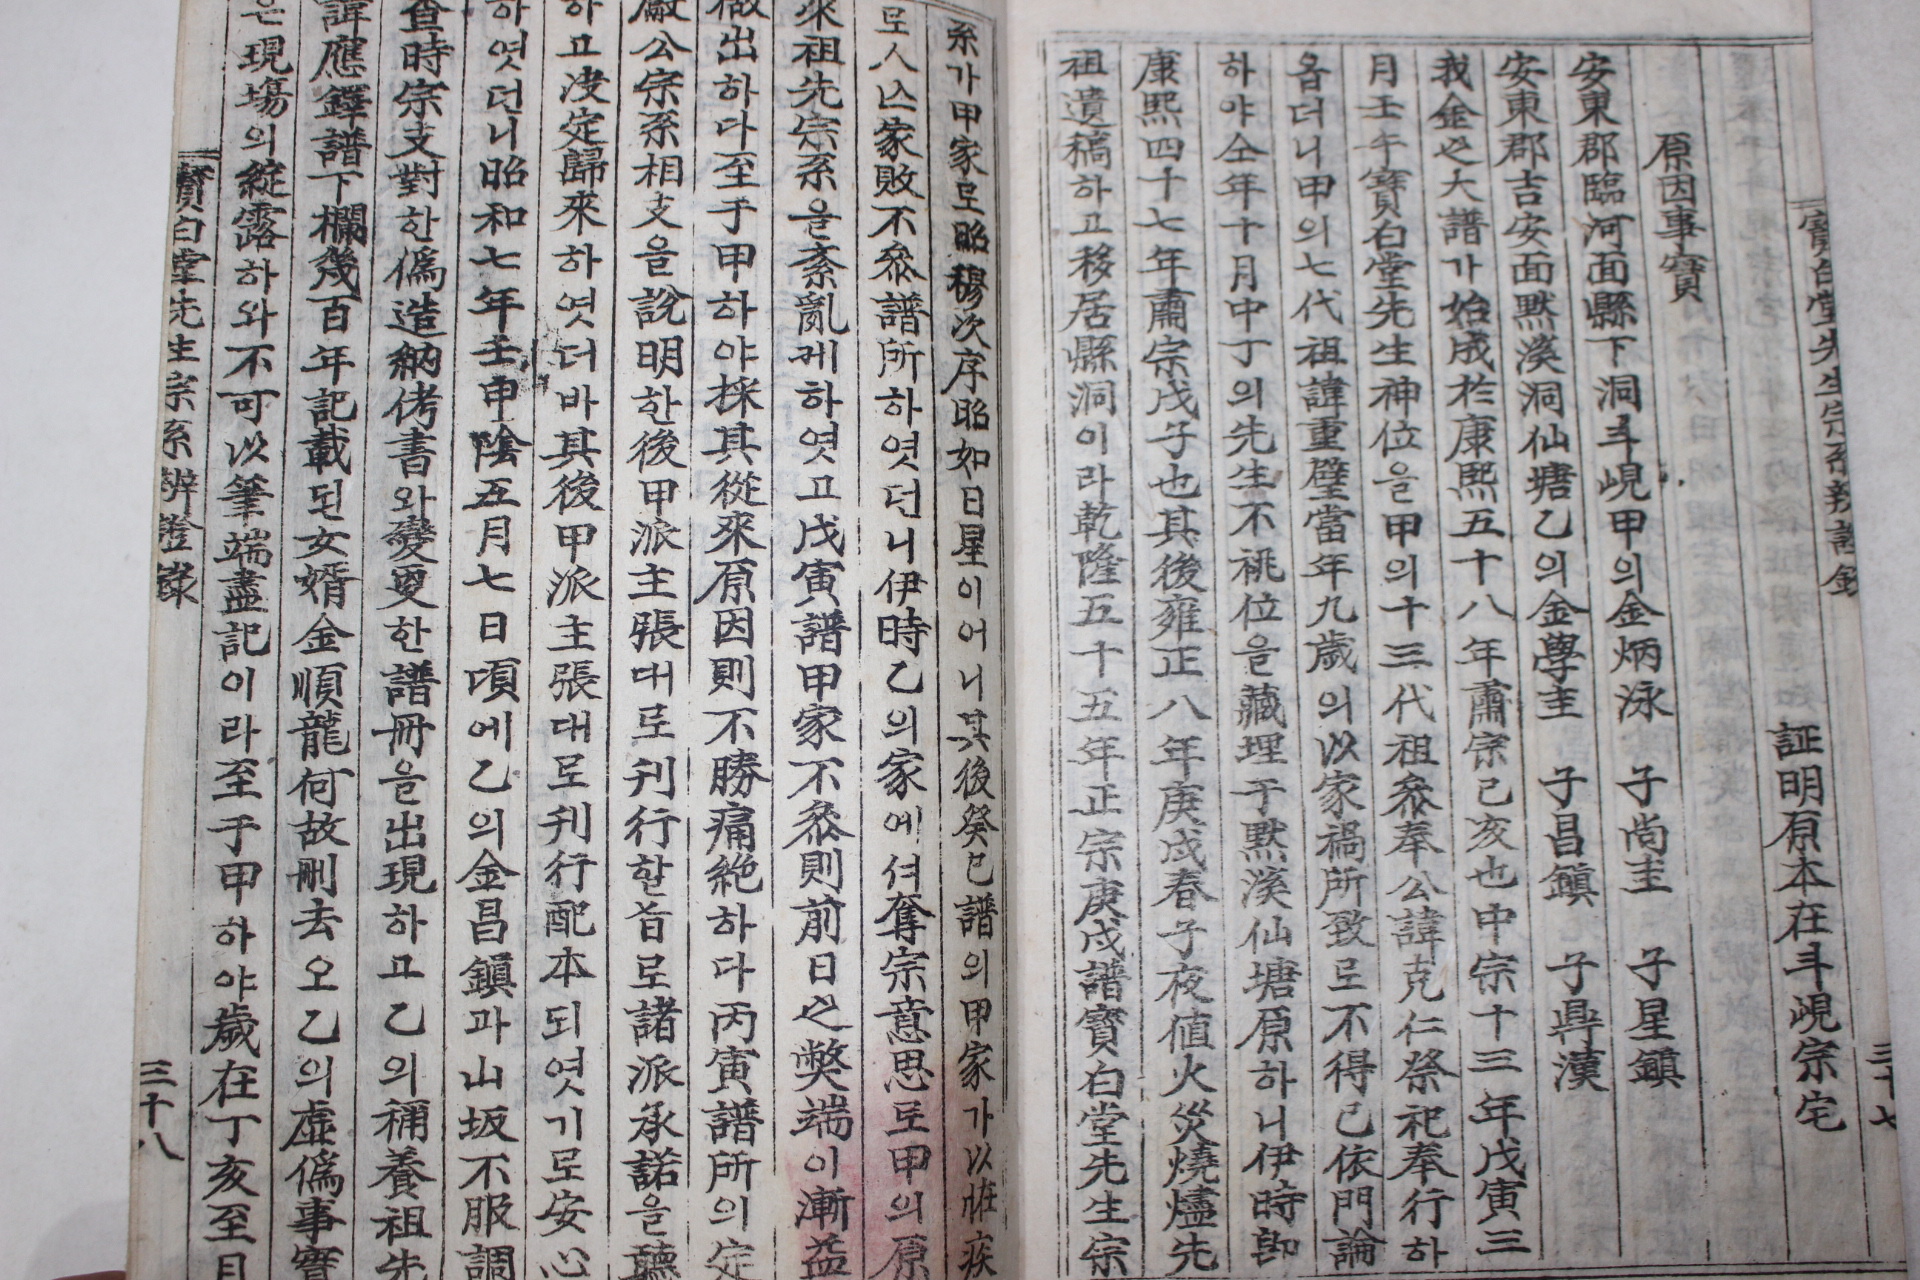 寶白堂先生宗系辨證錄
三十七
証明原本在斗峴宗宅
原因事實
安東郡臨河面縣下洞斗峴甲의金炳泳 子尙圭 子星鎭
安東郡吉安面默溪洞仙塘乙의金學圭 子昌鎭 子鼎漢
我金之大譜가始成於康熙五十八年肅宗己亥也中宗十三年戊寅三
月壬午寶白堂先生神位을甲의十三代祖叅奉公諱克仁祭祀奉行하
옵더니甲의七代祖諱重璧當年九歲의以家禍所致로不得已依門論
하야仝年十月中丁의先生不祧位을藏埋于默溪仙塘原하니伊時卽
康熙四十七年肅宗戊子也其後雍正八年庚戌春子夜値火災燒燼先
祖遺稿하고移居縣洞이라乾隆五十五年正宗庚戌譜寶白堂先生宗
系가甲家로昭穆次序昭如日星이어니其後癸巳譜의甲家가以 疾
로人亼家敗不叅譜所하엿더니伊時乙의家에셔奪宗意思로甲의原
來祖先宗系을紊亂케하엿고戊寅譜甲家不叅則前日之弊端이漸益
做出하다至于甲하야採其從來原因則不勝痛絶하다丙寅譜所의定
厳公宗系相支을說明한後甲派主張대로刊行할旨로諸派承諾을聽
하고決定歸來하엿더바其後甲派主張대로刊行配本되엿기로安心
하엿던니昭和七年壬申陰五月七日頃에乙의金昌鎭과山坂不服調
査時宗支對한僞造納侤書와變更한譜冊을出現하고乙의補養祖先
諱應鐸譜下欄幾百年記載된女婿金順龍何故刪去오乙의虛僞事實
은現場의綻露하와不可以筆端盡記이라至于甲하야歲在丁亥至月
寶白堂先生宗系辨證錄
三十八